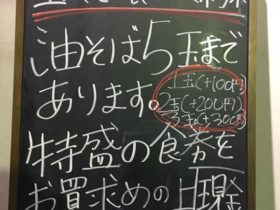 油そば5玉まで
あります。
1玉(+100円)
2玉(+200円)
3玉(+300円)
特盛の食券を
お買求めの上現金